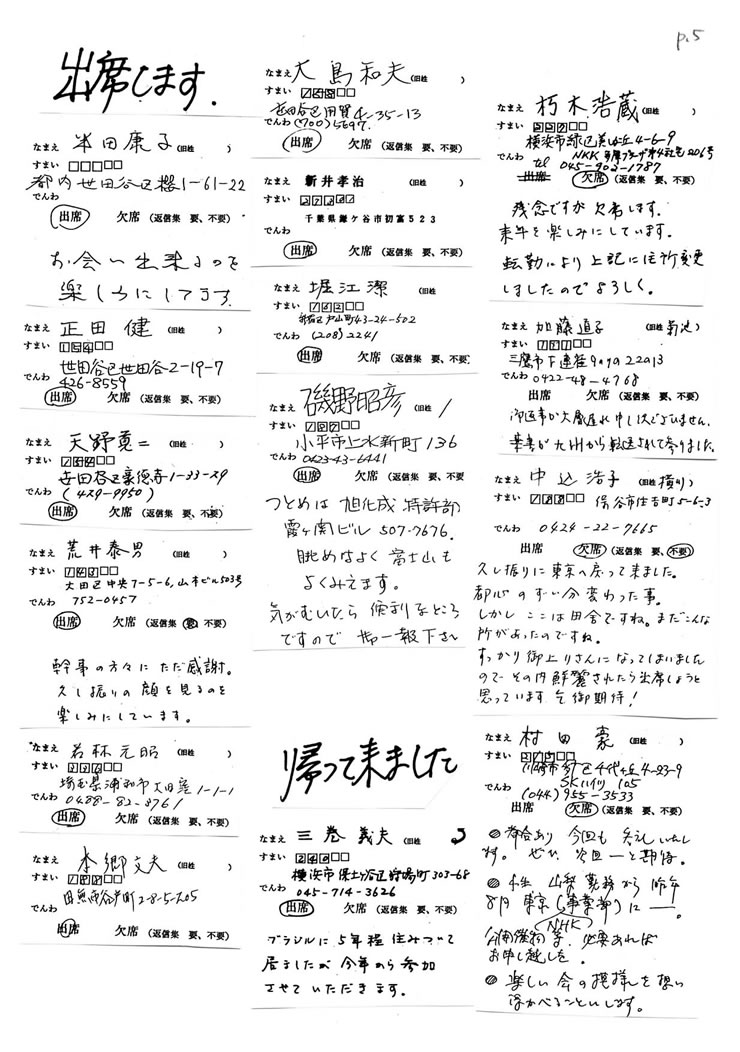 p.5
出席します.
なまえ 半田康子 (旧姓 )
すまい
都内世田谷区櫻1-61-22
でんわ
出席 欠席 (返信集 要、不要)
お会い出来るのを
楽しみにしてます
なまえ 正田 健 (旧姓 )
すまい 154
世田谷区世田谷2-19-7
でんわ 426-8559
出席 欠席 (返信集 要、不要)
なまえ 天野寛二 (旧姓 )
すまい
世田谷区豪徳寺1-33-29
でんわ (429-9950)
出席 欠席 (返信集 要、不要)
なまえ 荒井泰男 (旧姓 )
すまい 143
大田区中央7-5-6,山本ビル503号
でんわ 752-0457
出席 欠席 (返信集 要、不要)
幹事の方々にただ感謝。
久し振りの顔を見るのを
楽しみにしています。
なまえ 若林元昭 (旧姓 )
すまい 336
埼玉県浦和市大田窪1-1-1
でんわ 0488-82-8761
出席 欠席 (返信集 要、不要)
なまえ 本郷文夫 (旧姓 )
すまい
2-8-5-205
でんわ
出席 欠席 (返信集 要、不要)
なまえ 大島和夫 (旧姓 )
すまい 158
世田谷区用賀4-35-13
でんわ (700) 5697.
出席 欠席 (返信集 要、不要)
なまえ 新井孝治 (旧姓 )
すまい
千葉県鎌ケ谷市初富523
でんわ
出席 欠席 (返信集 要、不要)
なまえ 堀江 潔 (旧姓
すまい 162
新宿区戸山町43-24-502
でんわ (208) 2241
出席 欠席 (返信集 要、不要
なまえ 磯野昭彦
すまい 187
小平市上水新町136
でんわ 0423-43-6441
出席 欠席 (返信集 要、不要)
つとめは 旭化成 特許部
霞ヶ関ビル 507-7676.
眺めはよく 富士山も
よくみえます。
気がむいたら 便利なところ
ですので 御一報下さい
帰って来ました
なまえ 三巻 義夫
すまい 240
横浜市保土ケ谷区狩場町303-68
でんわ 045-714-3626
出席 欠席 (返信集 要、不要)
ブラジルに5年程住みついて
居ましたが今年から参加
させていただきます。
なまえ 朽木浩蔵 (旧姓 )
すまい 227
横浜市緑区美しが丘4-6-9
でんわ NKK 多摩プラーザ第4社宅206号
tel 045-902-1787
出席 欠席 (返信集 要、不要)
残念ですが欠席します。
来年を楽しみにしています。
転勤により上記に住所変更
しましたのでよろしく。
なまえ 加藤道子 (旧姓 菊池)
すまい 181
三鷹市下連雀
でんわ 0422-48-4768
出席 欠席 (返信集 要、不要)
御返事が大変遅れ申し訳ございません.
葉書が九州から転送されて参りました。
なまえ 中込浩子 (旧姓 横川)
すまい 188 保谷市住吉町5-6-3
でんわ 0424-22-7665
出席 欠席 (返信集 要、不要)
久し振りに東京へ戻って来ました。
都心のずい分変わった事。
しかし ここは田舎ですね。まだこんな
所があったのですね。
すっかり御上りさんになってしまいました
ので その内 鮮麗されたら出席しようと
思っています 乞御期待!
なまえ 村田 豪 (旧姓 )
すまい 215
川崎市 区千代ヶ丘4-23-9
でんわ SKハイツ 105
(044) 955-3533
出席 欠席 (返信集 要、不要)
都合あり 今回も失礼いたし
ます。ぜひ、次回―と期待。
小生 山梨勤務から昨年
8月 東京(事業部)に―。
NHK
必要あれば
お申し越しを。
楽しい会の模様を想い
浮かべることにします。